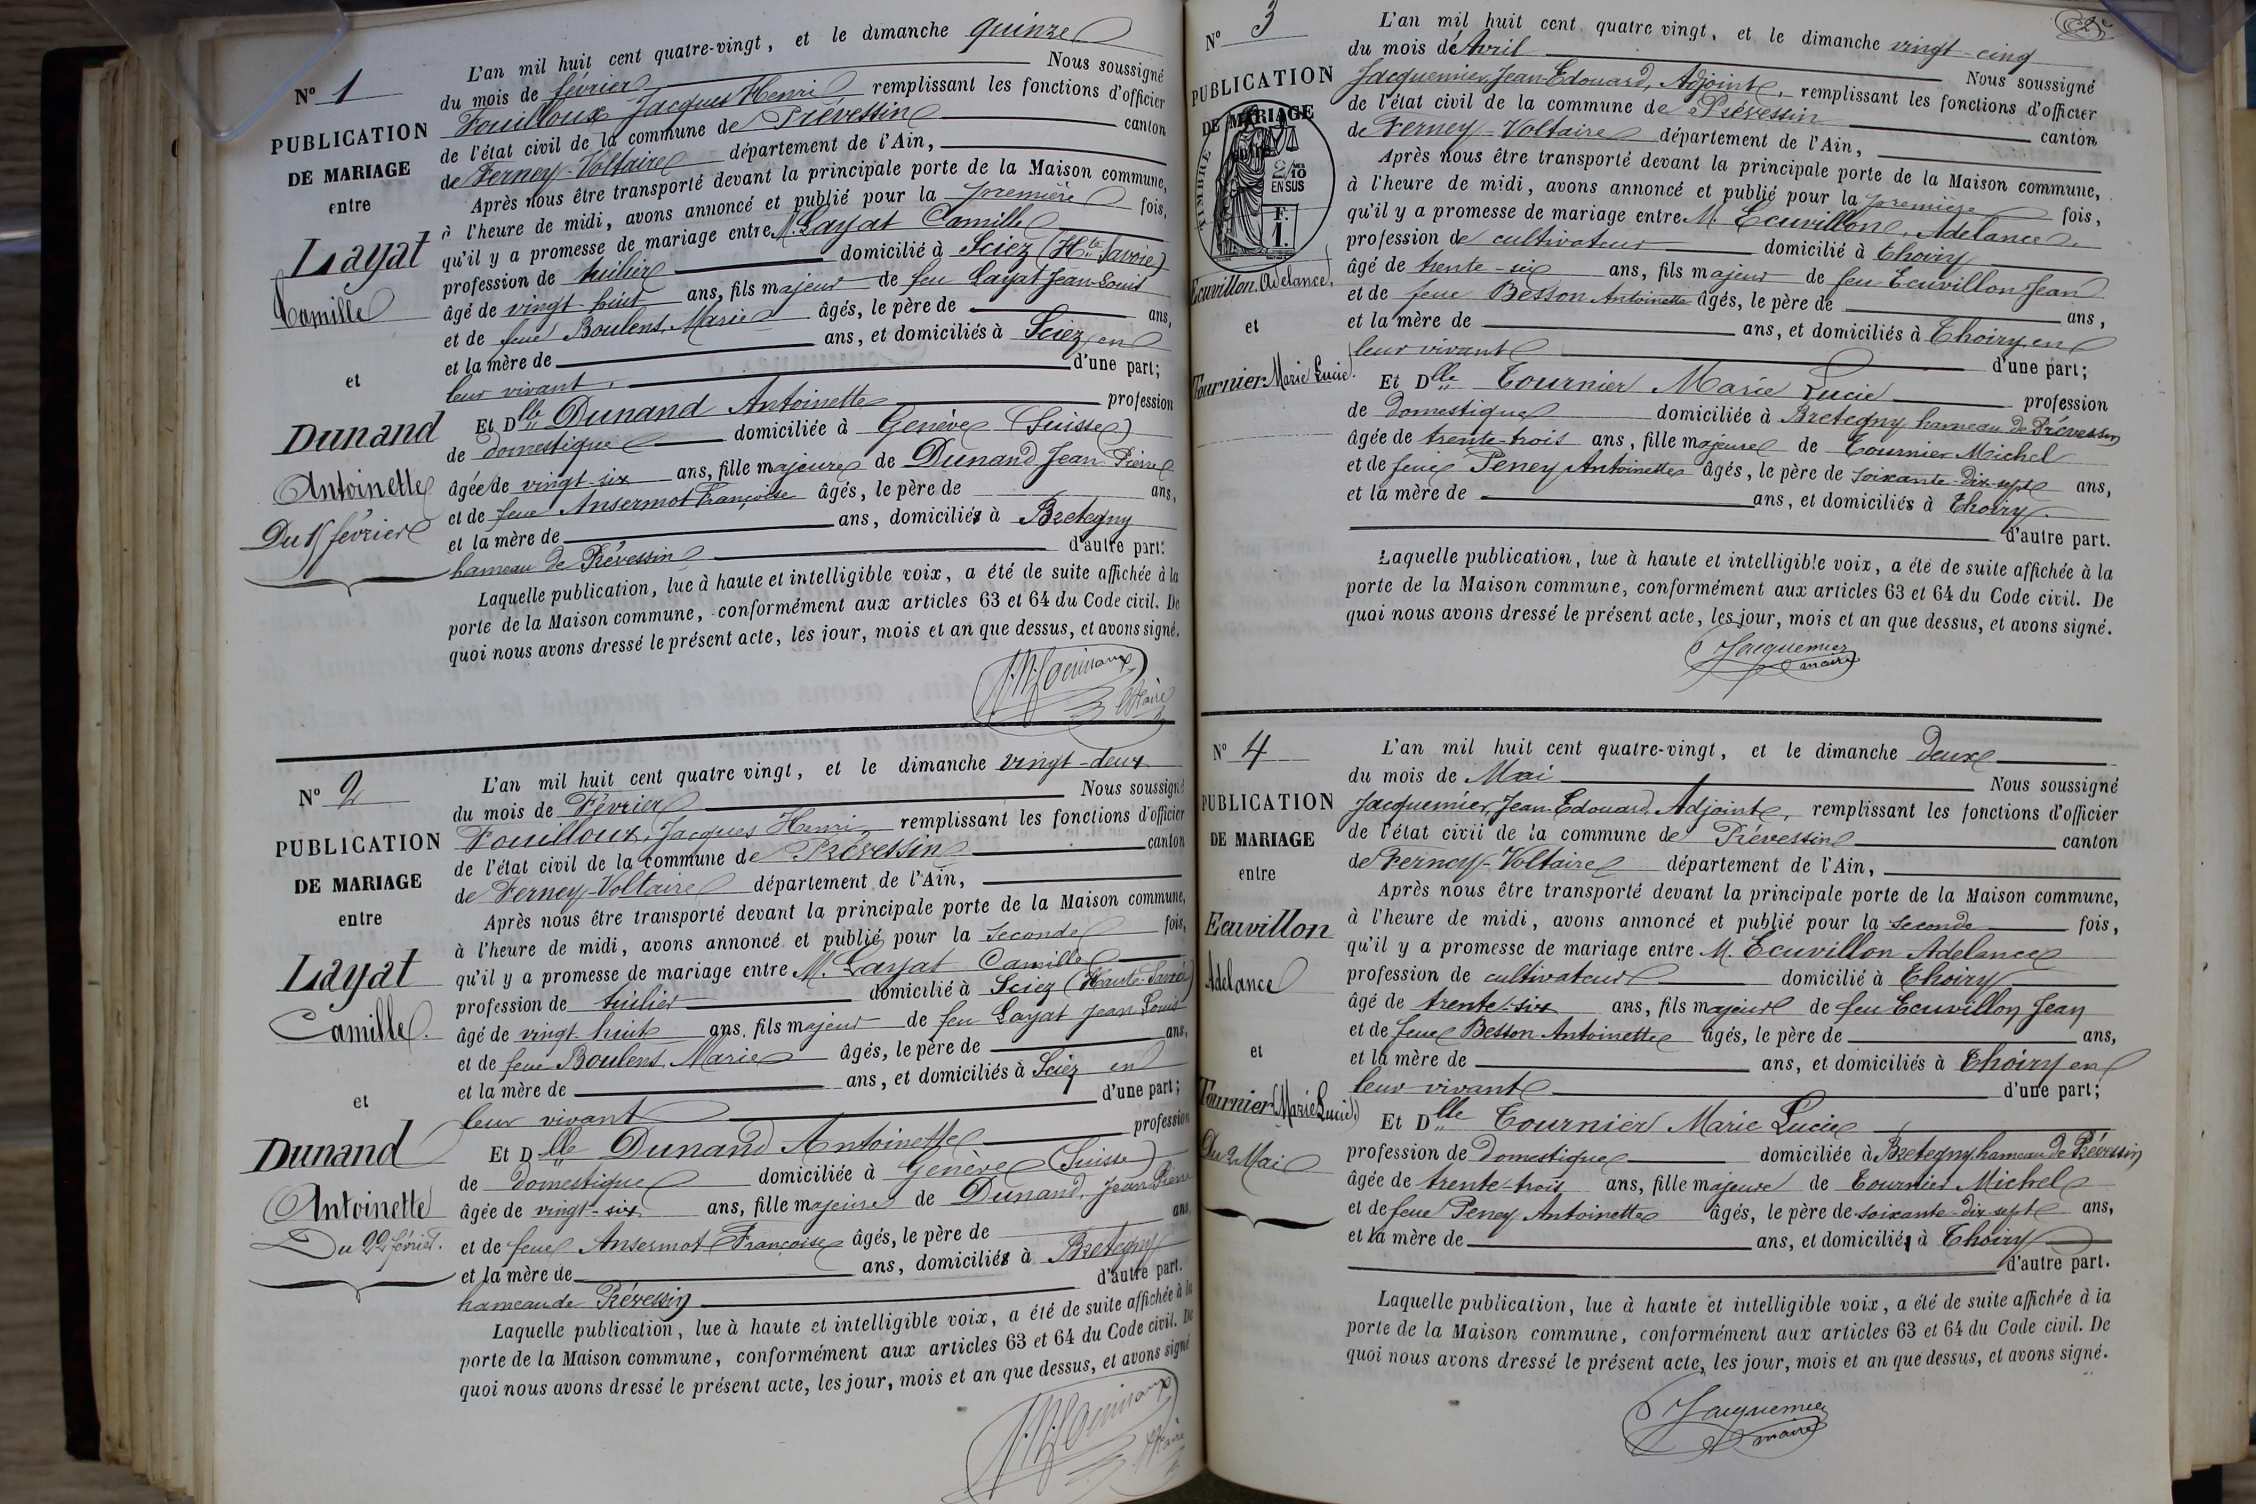 N° 1
PUBLICATION
DE MARIAGE
entre
Layat
Camille
et
Dunand
Antoinette
Du 15 février
L'an mil huit cent quatre-vingt, et le dimanche quinze
du mois de février Nous soussigné
Fouilloux Jacques Henri remplissant les fonctions d'officier
de l'état civil de la commune de Prévessin canton
de Ferney-Voltaire département de l'Ain,
Après nous être transporté devant la principale porte de la Maison commune,
à l'heure de midi, avons annoncé et publié pour la première fois,
qu'il y a promesse de mariage entre M. Layat Camille
profession de tuilier domicilié à Sciez (Hte Savoie)
âgé de vingt-huit ans, fils majeur de feu Layat Jean-Louis
et de feue Boulens Marie âgés, le père de ans,
et la mère de ans, et domiciliés à Sciez en
leur vivant. d'une part;
Et Dlle Dunand Antoinette profession
de domestique domiciliée à Genève (Suisse)
âgée de vingt-six ans, fille majeure de Dunand Jean Pierre
et de feue Ansermot Françoise âgés, le père de ans,
et la mère de ans, domiciliés à Bretegny
hameau de Prévessin d'autre part.
Laquelle publication, lue à haute et intelligible voix, a été de suite affichée à la
porte de la Maison commune, conformément aux articles 63 et 64 du Code civil. De
quoi nous avons dressé le présent acte, les jour, mois et an que dessus, et avons signé.
Maire
N° 2
PUBLICATION
DE MARIAGE
entre
Layat
Camille.
et
Dunand
Antoinette
Du 22 février.
L'an mil huit cent quatre vingt, et le dimanche vingt-deux
du mois de Février Nous soussigné
Fouilloux, Jacques Henri remplissant les fonctions d'officier
de l'état civil de la commune de Prévessin canton
de Ferney-Voltaire département de l'Ain,
Après nous être transporté devant la principale porte de la Maison commune,
à l'heure de midi, avons annoncé et publié pour la seconde fois,
qu'il y a promesse de mariage entre M. Layat Camille
profession de tuilier domicilié à Sciez (Haute-Savoie)
âgé de vingt-huit ans, fils majeur de feu Layat Jean Louis
et de feue Boulens Marie âgés, le père de ans,
et la mère de ans, et domiciliés à Sciez en
leur vivant d'une part;
Et Dlle Dunand Antoinette profession
de domestique domiciliée à Genève (Suisse)
âgée de vingt-six ans, fille majeure de Dunand, Jean Pierre
et de feue Ansermot Françoise âgés, le père de ans,
et la mère de ans, domiciliés à Bretegny
hameau de Prévessin d'autre part.
Laquelle publication, lue à haute et intelligible voix, a été de suite affichée à la
porte de la Maison commune, conformément aux articles 63 et 64 du Code civil. De
quoi nous avons dressé le présent acte, les jour, mois et an que dessus, et avons signé
Maire
N° 3
PUBLICATION
DE MARIAGE
TIMBRE
2/10
EN SUS
F.
1.
Ecuvillon Adelance,
et
Tournier Marie Lucie.
L'an mil huit cent quatre vingt, et le dimanche vingt-cinq
du mois de Avril Nous soussigné
Jacquemier, Jean-Edouard, Adjoint, remplissant les fonctions d'officier
de l'état civil de la commune de Prévessin
de Ferney-Voltaire département de l'Ain, canton
Après nous être transporté devant la principale porte de la Maison commune,
à l'heure de midi, avons annoncé et publié pour la première fois,
qu'il y a promesse de mariage entre M. Ecuvillon, Adelance
profession de cultivateur domicilié à Thoiry
âgé de trente-six ans, fils majeur de feu Ecuvillon Jean
et de feue Besson Antoinette âgés, le père de ans,
et la mère de ans, et domiciliés à Thoiry en
leur vivant d'une part;
Et Dlle Tournier Marie Lucie profession
de Domestique domiciliée à Bretegny hameau de Prévessin
âgée de trente-trois ans, fille majeure de Tournier Michel
et de feue Peney Antoinette âgés, le père de soixante-dix-sept ans,
et la mère de ans, et domiciliés à Thoiry.
d'autre part.
Laquelle publication, lue à haute et intelligible voix, a été de suite affichée à la
porte de la Maison commune, conformément aux articles 63 et 64 du Code civil. De
quoi nous avons dressé le présent acte, les jour, mois et an que dessus, et avons signé.
Jacquemier
maire
N° 4
PUBLICATION
DE MARIAGE
entre
Ecuvillon
Adelance
et
Tournier (Marie Lucie)
Du 2 Mai
L'an mil huit cent quatre-vingt, et le dimanche deux
du mois de Mai Nous soussigné
Jacquemier, Jean-Edouard, Adjoint, remplissant les fonctions d'officier
de l'état civil de la commune de Prévessin canton
de Ferney-Voltaire département de l'Ain,
Après nous être transporté devant la principale porte de la Maison commune,
à l'heure de midi, avons annoncé et publié pour la seconde fois,
qu'il y a promesse de mariage entre M. Ecuvillon Adelance
profession de cultivateur domicilié à Thoiry
âgé de trente-six ans, fils majeur de feu Ecuvillon Jean
et de feue Besson Antoinette âgés, le père de ans,
et la mère de ans, et domiciliés à Thoiry en
leur vivant d'une part;
Et Dlle Tournier Marie Lucie
profession de Domestique domiciliée à Bretegny hameau de Prévessin
âgée de trente-trois ans, fille majeure de Tournier Michel
et de feue Peney Antoinette âgés, le père de soixante-dix-sept ans,
et la mère de ans, et domiciliés à Thoiry
d'autre part.
Laquelle publication, lue à haute et intelligible voix, a été de suite affichée à la
porte de la Maison commune, conformément aux articles 63 et 64 du Code civil. De
quoi nous avons dressé le présent acte, les jour, mois et an que dessus, et avons signé.
Jacquemier
maire